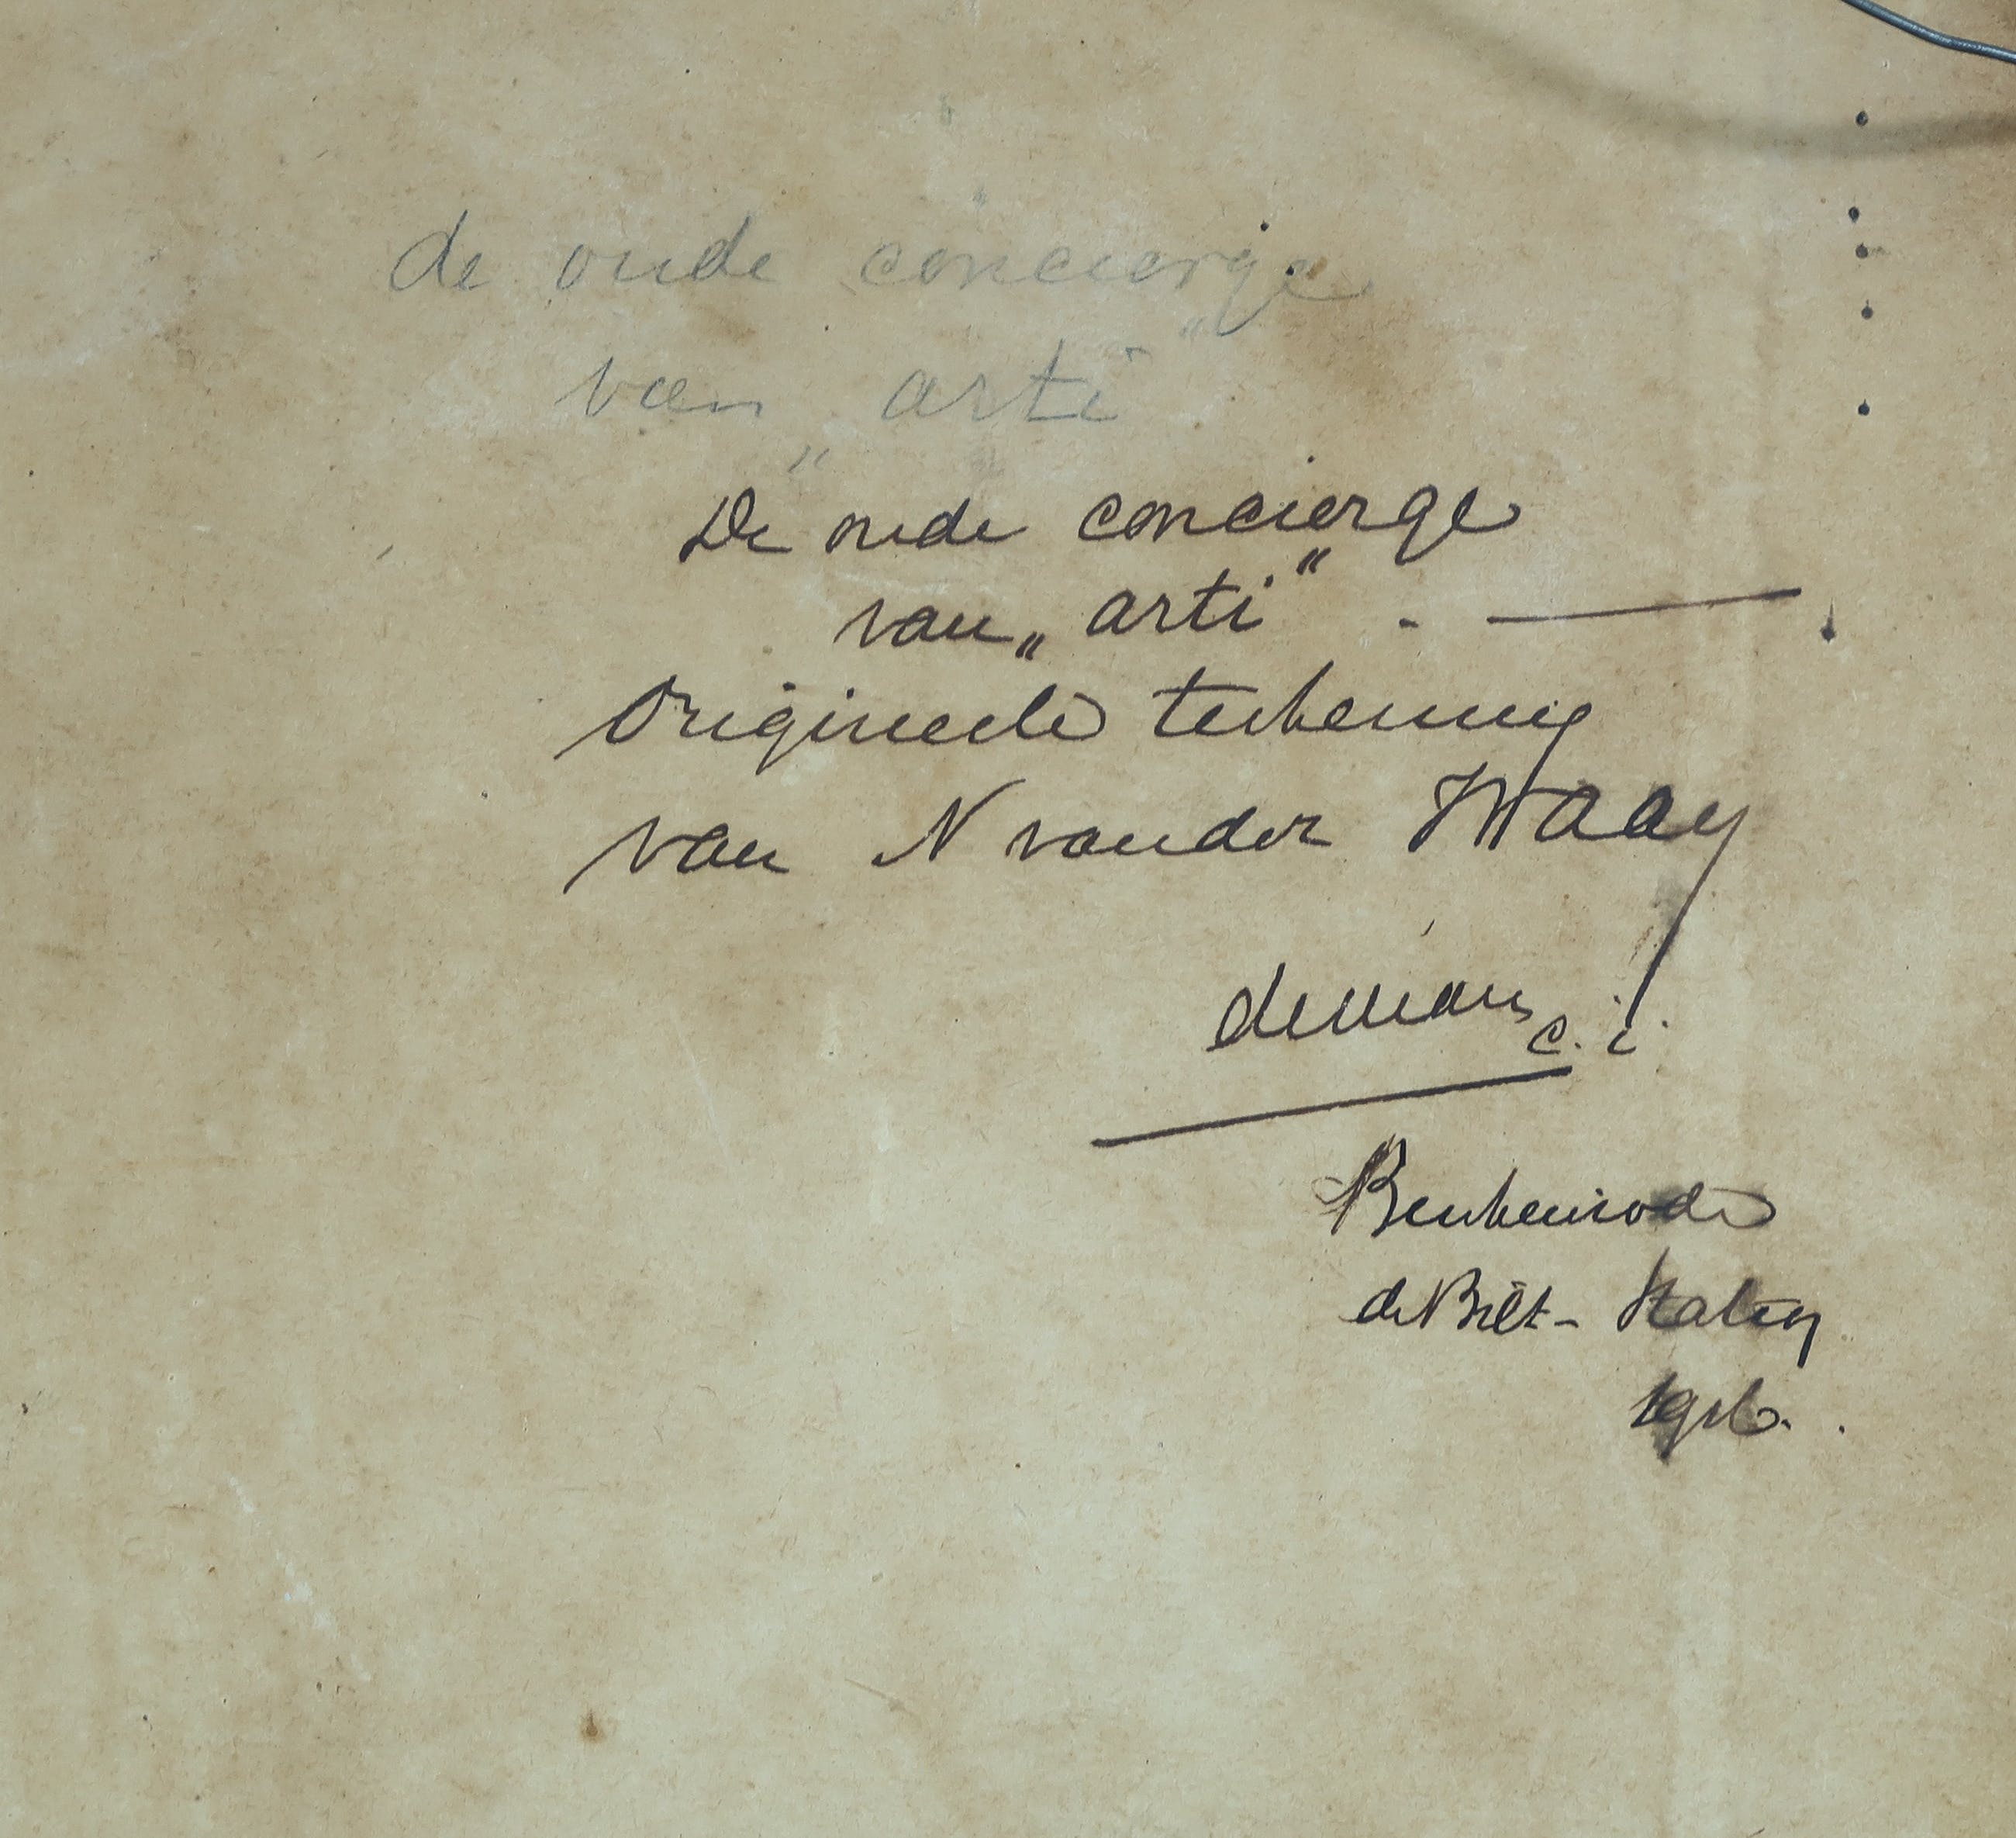 de oude concierge
van „arti"
De oude concierge
van „arti" . —
Origineele teekening
van N van der Waay
c. i.
Beukenrode
de Bilt - Station